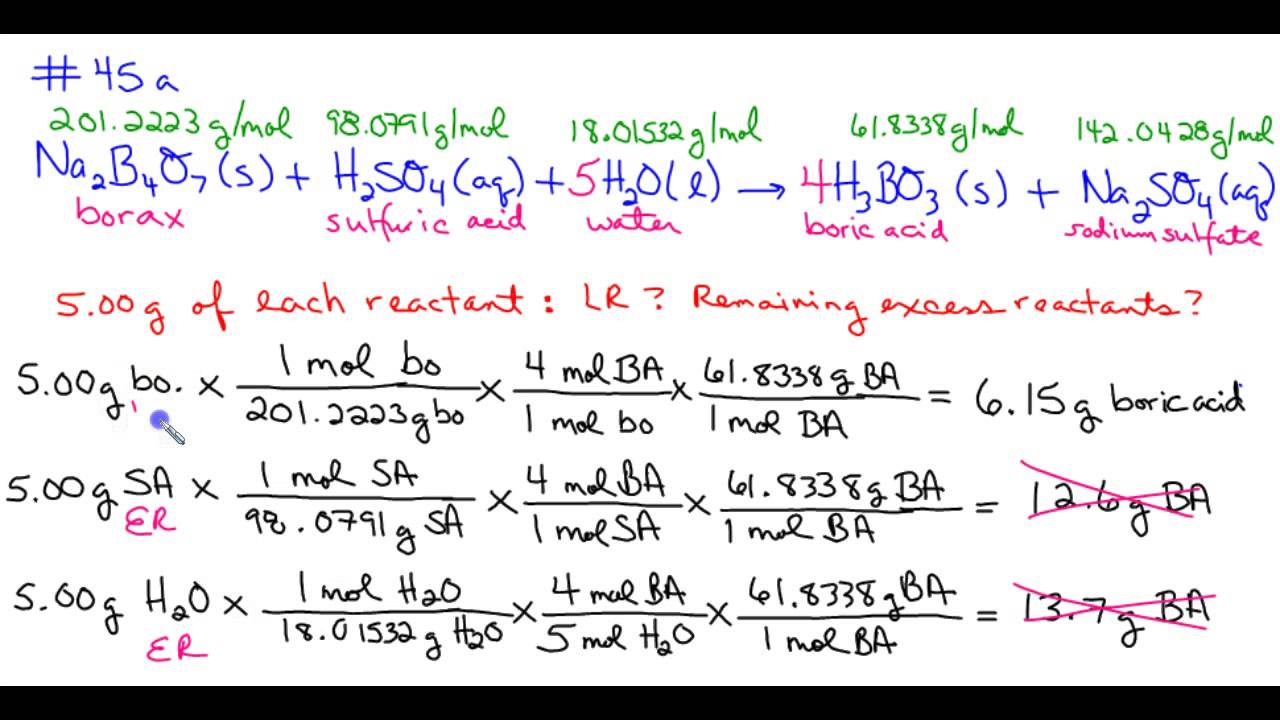 # 45a
201.2223 g/mol 98.0791 g/mol 18.01532 g/mol 61.8338 g/mol 142.0428 g/mol
Na₂B₄O₇ (s) + H₂SO₄ (aq) + 5H₂O (l) → 4H₃BO₃ (s) + Na₂SO₄ (aq)
borax sulfuric acid water boric acid sodium sulfate
5.00 g of each reactant : LR ? Remaining excess reactants ?
5.00 g bo. × 1 mol bo / 201.2223 g bo × 4 mol BA / 1 mol bo × 61.8338 g BA / 1 mol BA = 6.15 g boric acid
5.00 g SA × 1 mol SA / 98.0791 g SA × 4 mol BA / 1 mol SA × 61.8338 g BA / 1 mol BA = 12.6 g BA
ER
5.00 g H₂O × 1 mol H₂O / 18.01532 g H₂O × 4 mol BA / 5 mol H₂O × 61.8338 g BA / 1 mol BA = 13.7 g BA
ER